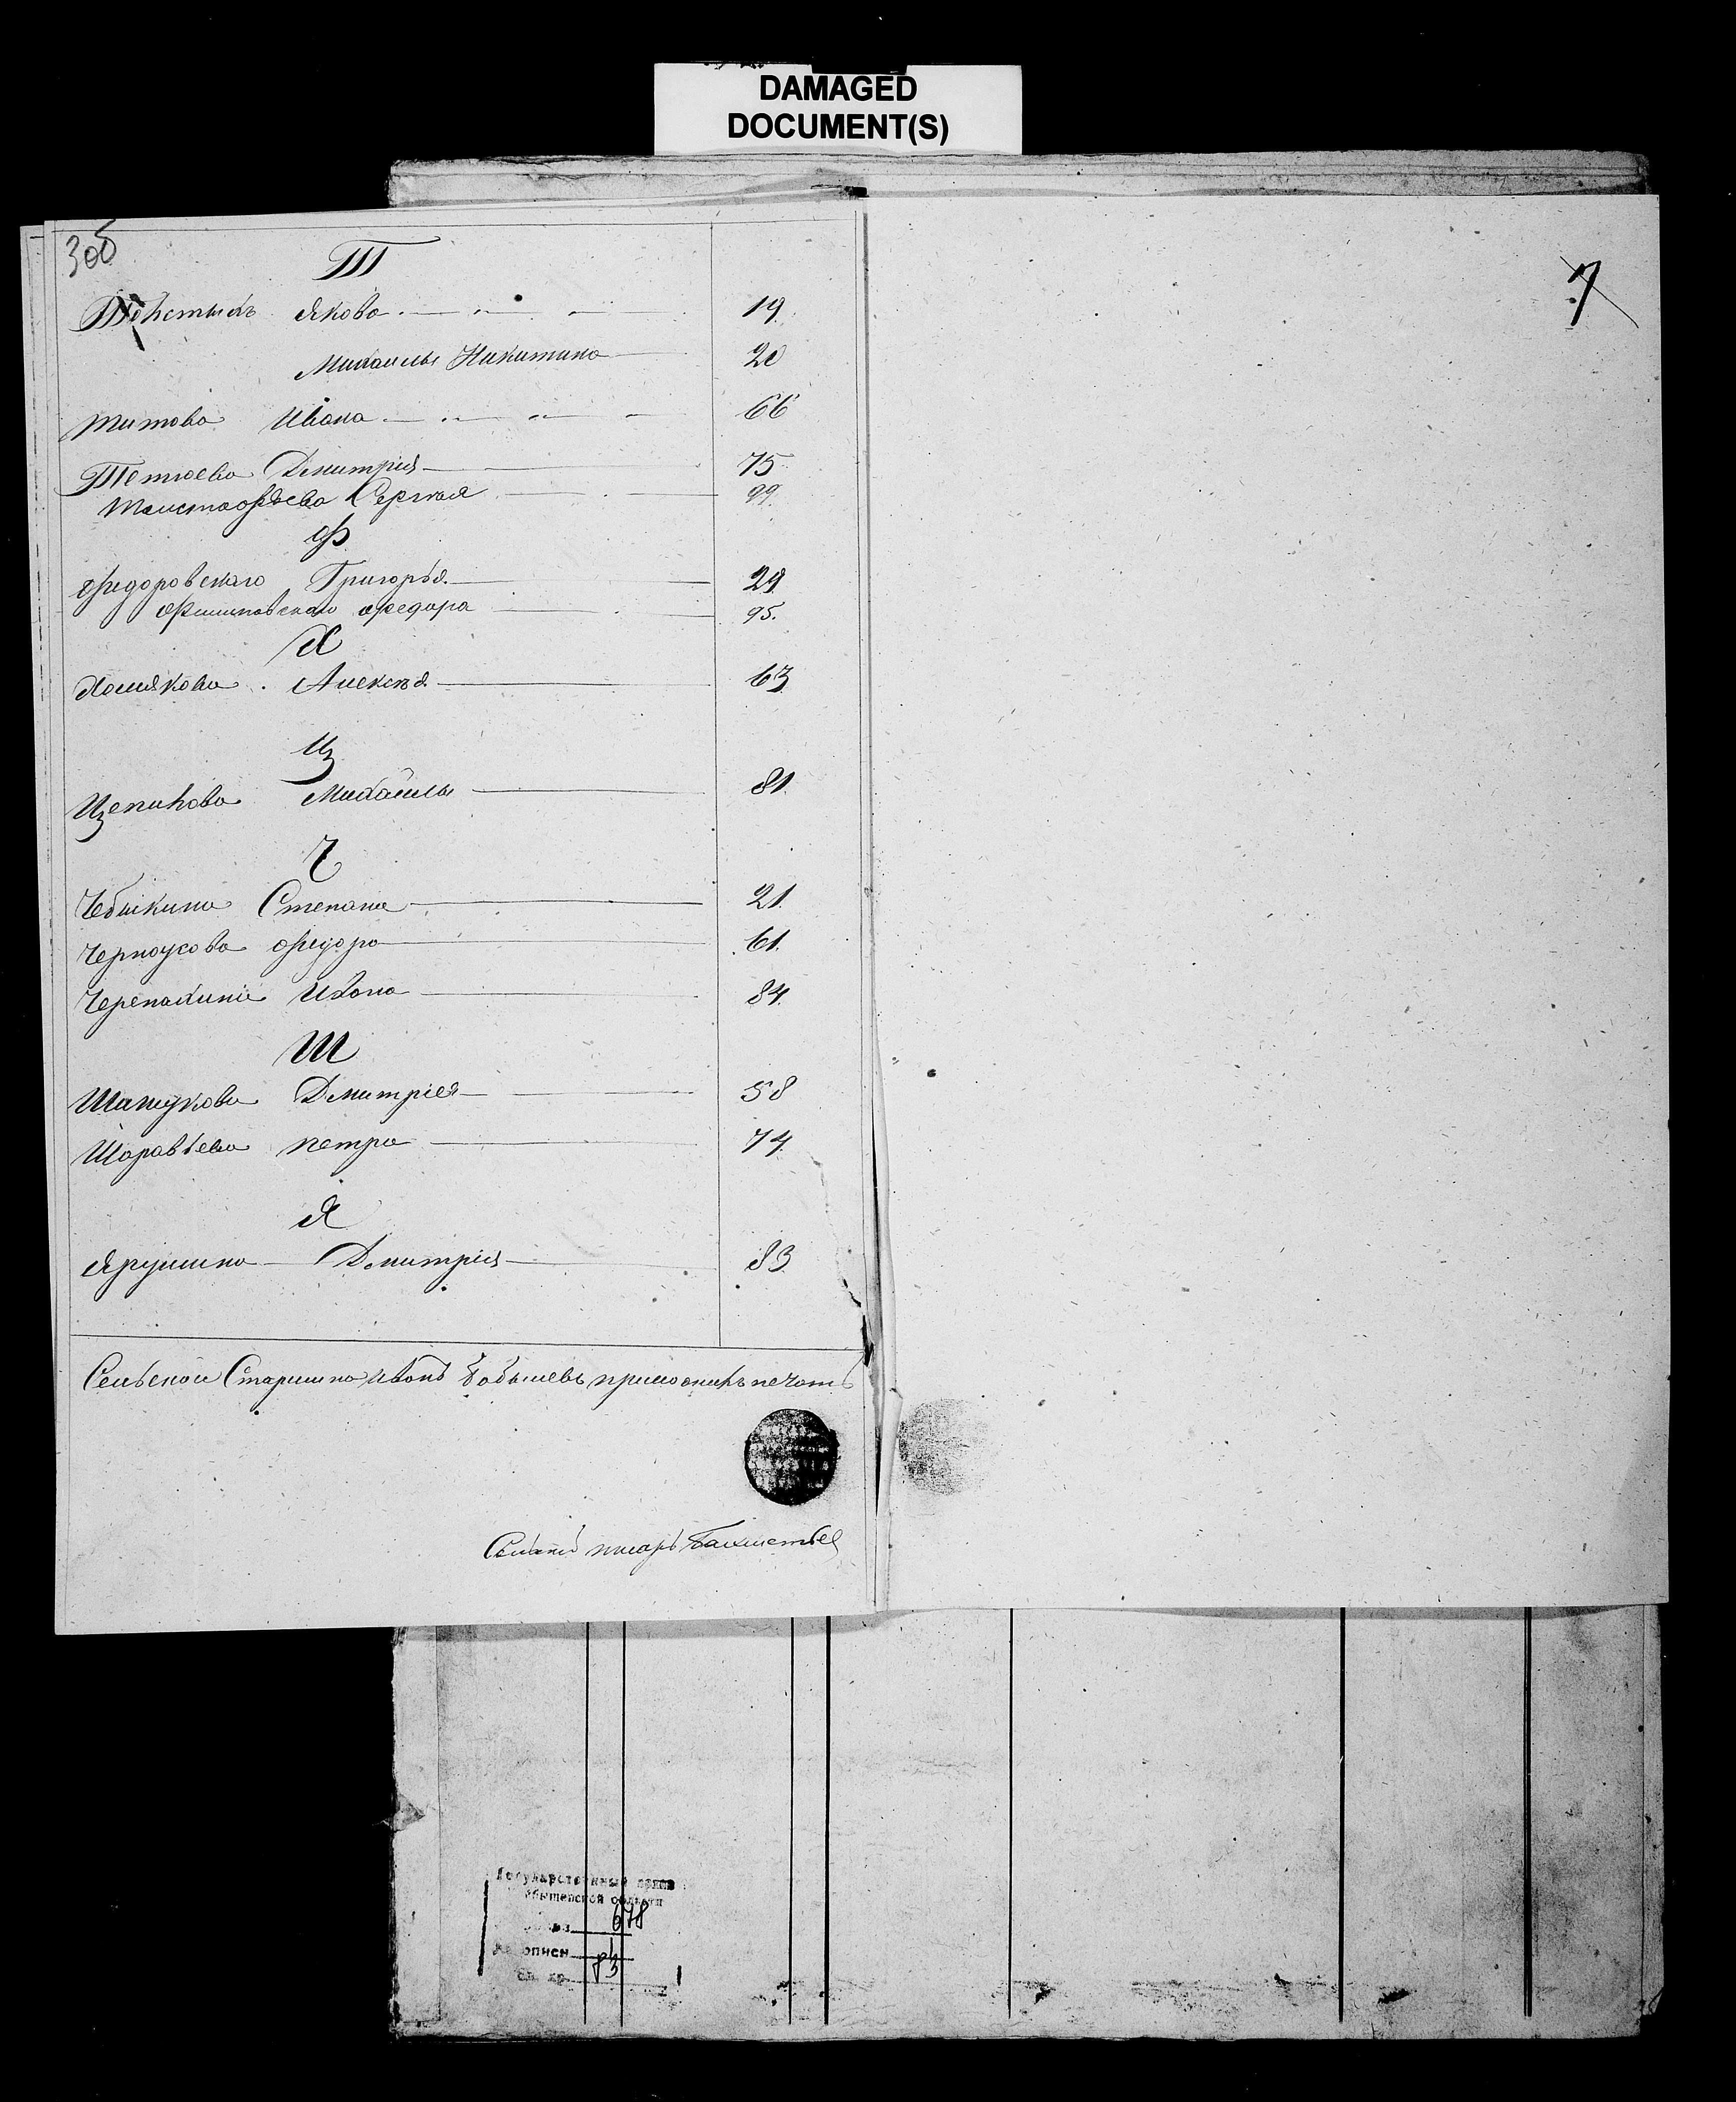 DAMAGED
DOCUMENT(S)
Т
Якова 19
Михаилы Никитина 20
Титова Ивана 66
Тетюева Дмитрія 75
Сергѣя 99
Ф
Федоровскаго Григорья 29
Филиповскаго Федора 95.
Х
Хомякова Алексѣя 63
Ц
Цепинова Михайлы 81
Ч
Чебыкина Степана 21.
Черноусова Федора 61.
Черепахина Ивана 84.
Ш
Шапукова Дмитрія 58
Шоравьева Петра 74.
Я
Ярушина Дмитрія 83
Сельской Старшина Иванъ Бобылевъ приложилъ печать
Сельскій писарь
7
Государственный архив
области
678
1
83